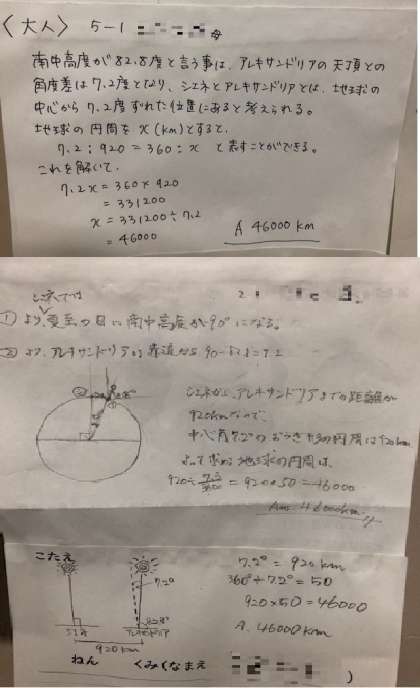 〈大人〉 5-1 母
南中高度が82.8度と言う事は、アレキサンドリアの天頂との
角度差は7.2度となり、シエネとアレキサンドリアとは、地球の
中心から7.2度ずれた位置にあると考えられる。
地球の円周をx(km)とすると、
7.2:920=360:x と表すことができる。
これを解いて、
7.2x=360×920
=331200
x=331200÷7.2
=46000
A 46000km
①より、夏至の日に南中高度が90°になる。
②より、アレキサンドリアは
シエネから、アレキサンドリアまでの距離が
920kmなので、
中心角7.2°のおうぎ形の円周は920km
よって求める地球の円周は、
=920×50=46000
Ans. 46000km
こたえ
7.2°
82.8°
シエネ アレキサンドリア
920km
7.2°=920km
360°÷7.2°=50
920×50=46000
A. 46000km
ねん くみ(なまえ )